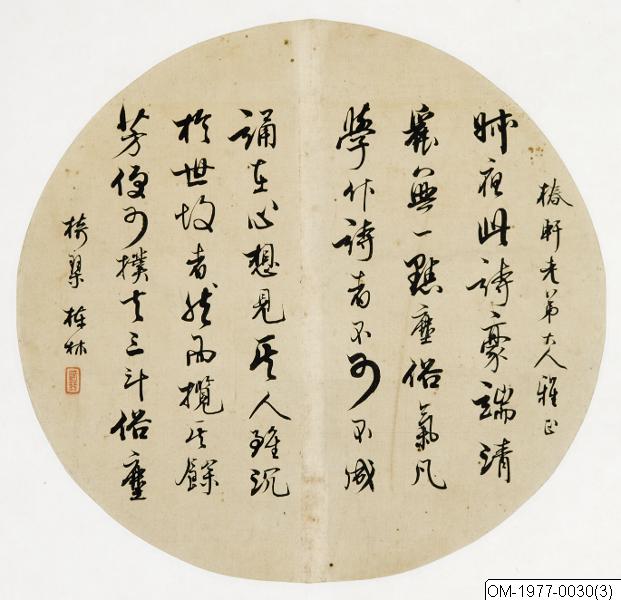 椿軒老弟大人雅正
叔夜此詩豪端清
麗無一點塵俗氣凡
學作詩者不可不成
誦在心想見其人雖沉
於世故者然而攬其餘
芳便可撲去三斗俗塵
林
OM-1977-0030(3)